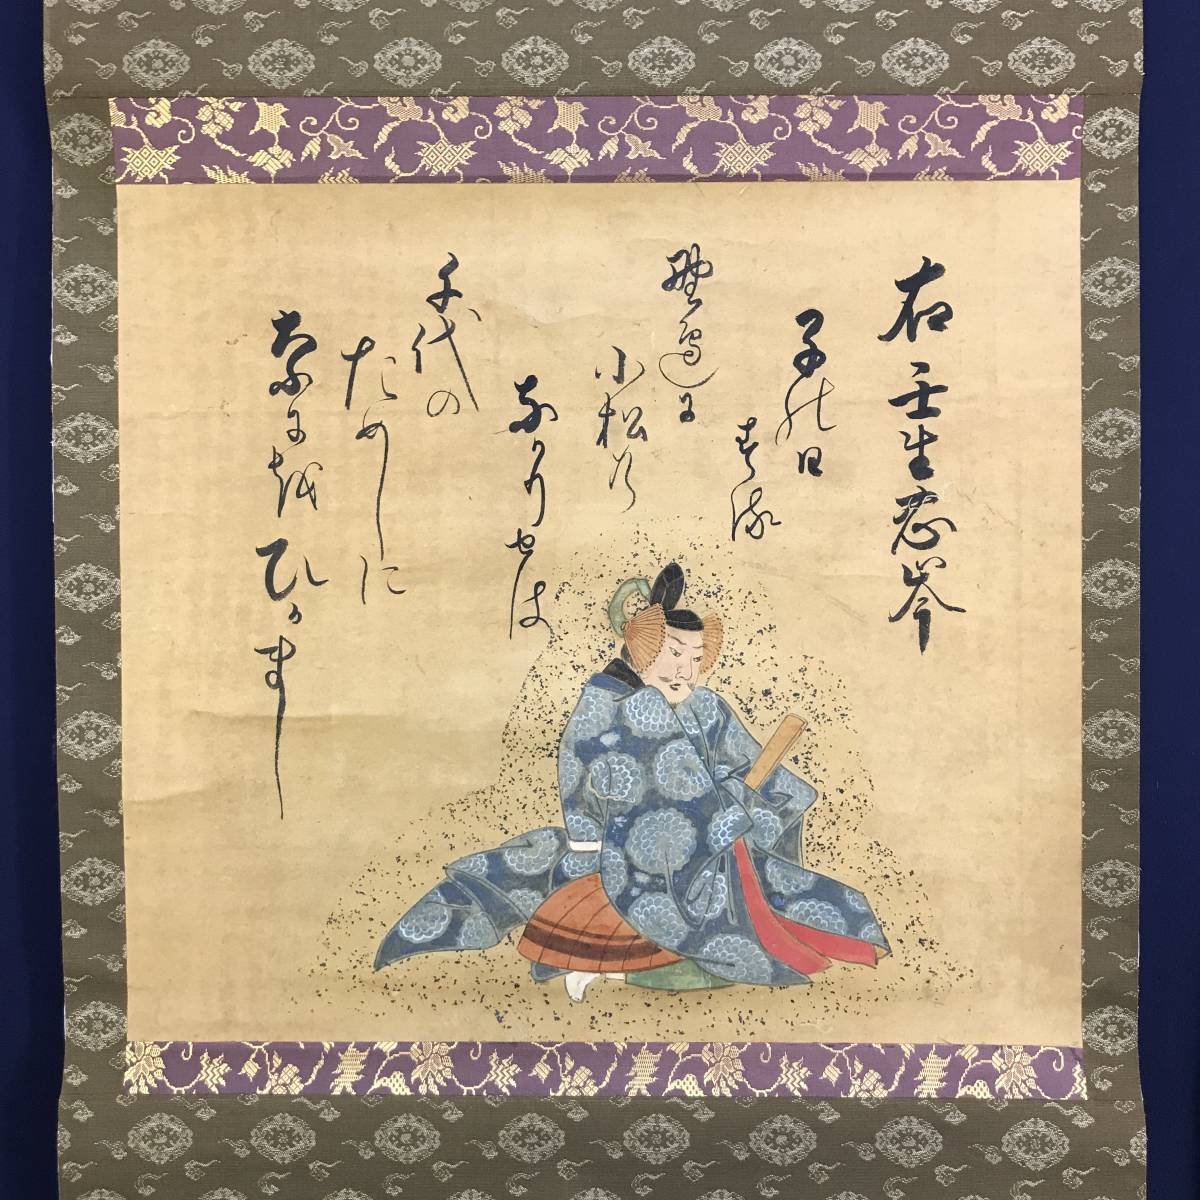 右 壬生忠岑
子の日
する
野邊に
小松の
なかりせは
千代の
ためしに
なにをひかまし